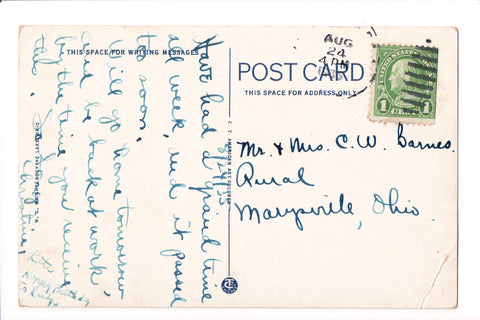 THIS SPACE FOR WRITING MESSAGES
Have had a grand time
all week, and it passed
too soon.
Will go home tomorrow
and be back at work
by the time you receive
this.
Christine,
Happy Birthday
to Ruby
8/24/35
C. T. AMERICAN ART COLORED
POST CARD
THIS SPACE FOR ADDRESS ONLY
AUG
24
4 PM
UNITED STATES POSTAGE
1 1
Mr. & Mrs. C. W. Barnes.
Rural
Marysville, Ohio